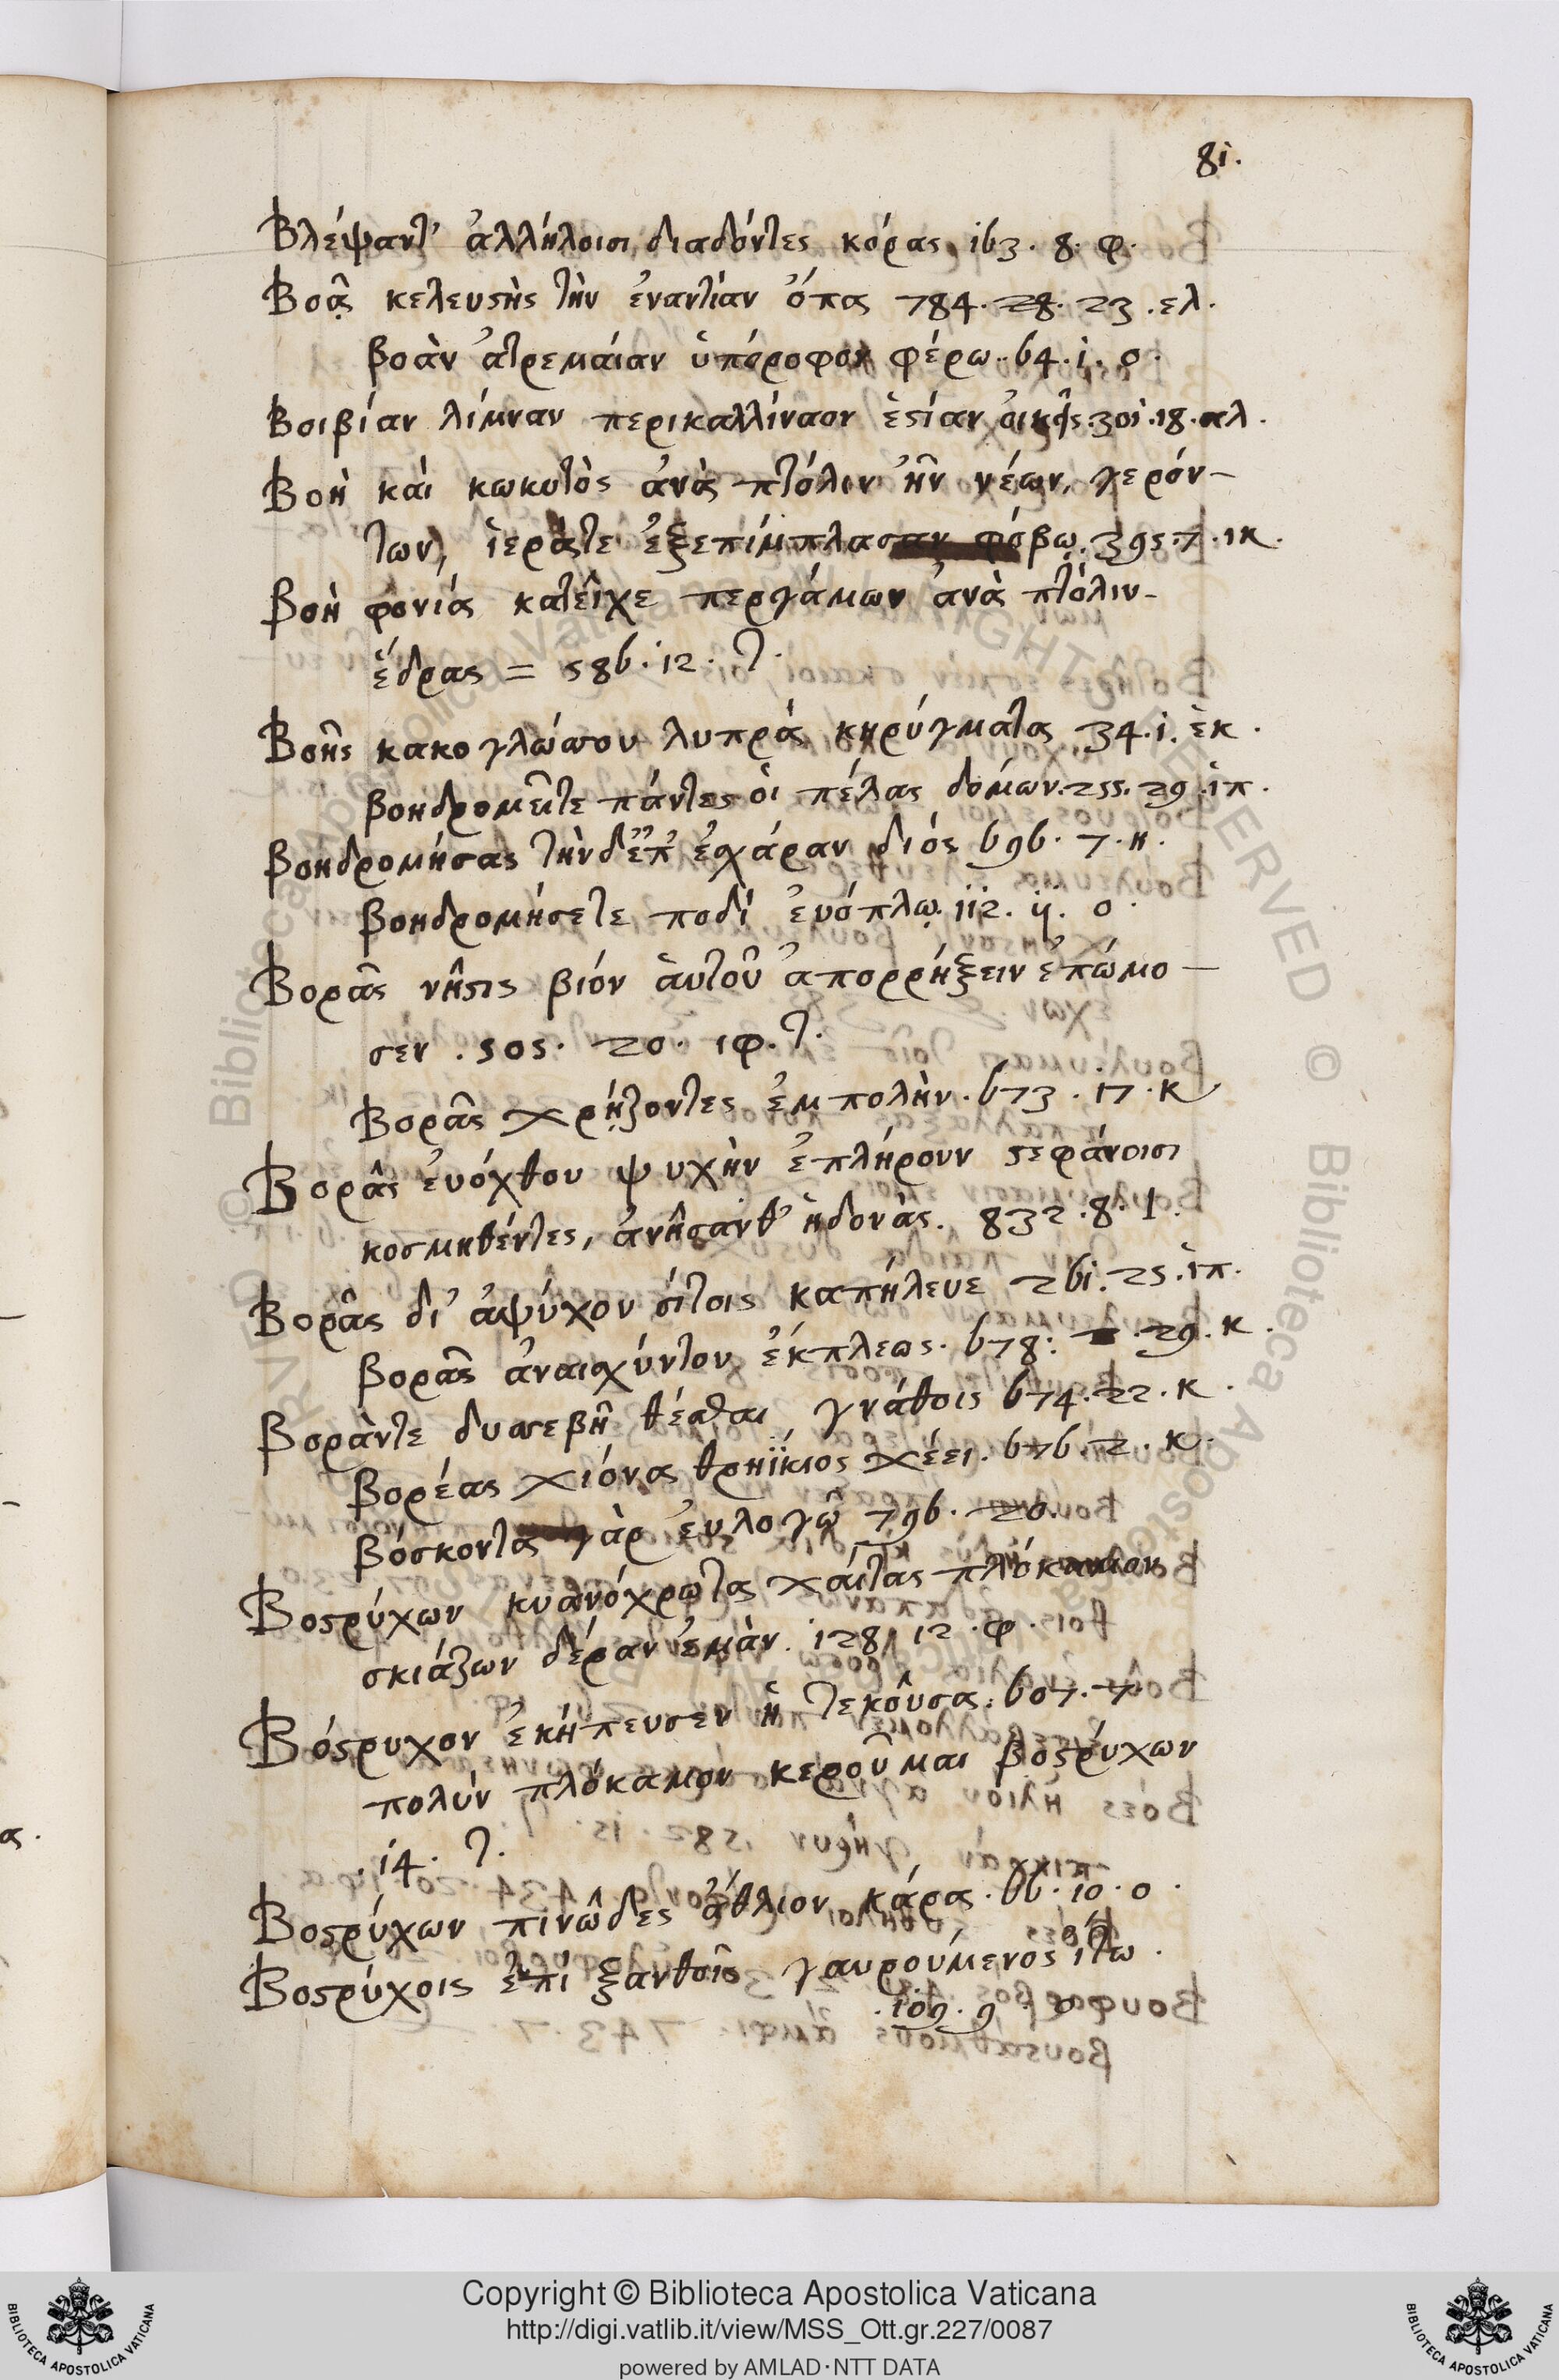 81.
Βλέψαντ' ἀλλήλοισι διαδόντες κόρας 163. 8. φ.
Βοᾷς κελευσὴς τὴν ἐναντίαν ὄπας 784. 28. 23. ελ.
βοὰν ἀτρεμαίαν ὑπόροφον φέρω. 64. 1. ο.
Βοιβίαν λίμναν περικαλλίναον ἑστίαν οἰκεῖς. 301. 18. αλ.
Βοὴ καὶ κωκυτὸς ἀνὰ πτόλιν ἦν νέων, γερόν-
των, ἱεράτε ἐξεπίμπλασαν φόβῳ. 395. 7. ικ.
Βοὴ φονιά κατεῖχε περγάμων ἀνὰ πτόλιν-
ἕδρας = 586. 12. τ.
Βοῆς κακογλώσσου λυπρὰ κηρύγματα 34. 1. ἑκ.
βοηδρομεῖτε πάντες οἱ πέλας δόμων. 255. 29. ἱπ.
βοηδρομήσας τὴνδ' ἐπ' ἐσχάραν διός 696. 7. η.
βοηδρομήσετε ποδὶ ἐνόπλῳ. 112. 11. ο.
Βορᾶς νῆστις βιόν ἀυτοῦ ἀπορρήξειν ἐπώμο-
σεν. 505. 20. ιφ. τ.
Βορᾶς χρῄζοντες ἐμπολὴν. 673. 17. κ
Βορᾶς ἐυόχθου ψυχὴν ἐπλήρουν στεφάνοισι
κοσμηθέντες, ἀνῆσανθ' ἡδονὰς. 832. 8. Ι.
Βορᾶς δι' ἀψύχου σίτοις καπήλευε 261. 25. ἱπ.
βορᾶς ἀναισχύντου ἔκπλεως. 678: 29. κ.
Βοράντε δυσσεβῆ θέσθαι γνάθοις 674. 22. κ.
Βορέας χιόνα θρηΐκιος χέει. 676. 2. κ.
βόσκοντα γὰρ ἐυλογῶ 796. 20.
Βοστρύχων κυανόχρωτα χαίτας πλόκαμον
σκιάζων δέραν ἐμὰν. 128. 12. φ.
Βόστρυχον ἐκήπευσεν ἡ τεκοῦσα. 607. 7
πολὺν πλόκαμον κεροῦμαι βοστρύχων
. 14. τ.
Βοστρύχων πινῶδες ἄθλιον κάρα. 66. 10. ο.
Βοστρύχοις ἐπὶ ξανθοῖς γαυρούμενος ἴτω.
. 109. 9. ο
Copyright © Biblioteca Apostolica Vaticana
http://digi.vatlib.it/view/MSS_Ott.gr.227/0087
powered by AMLAD·NTT DATA